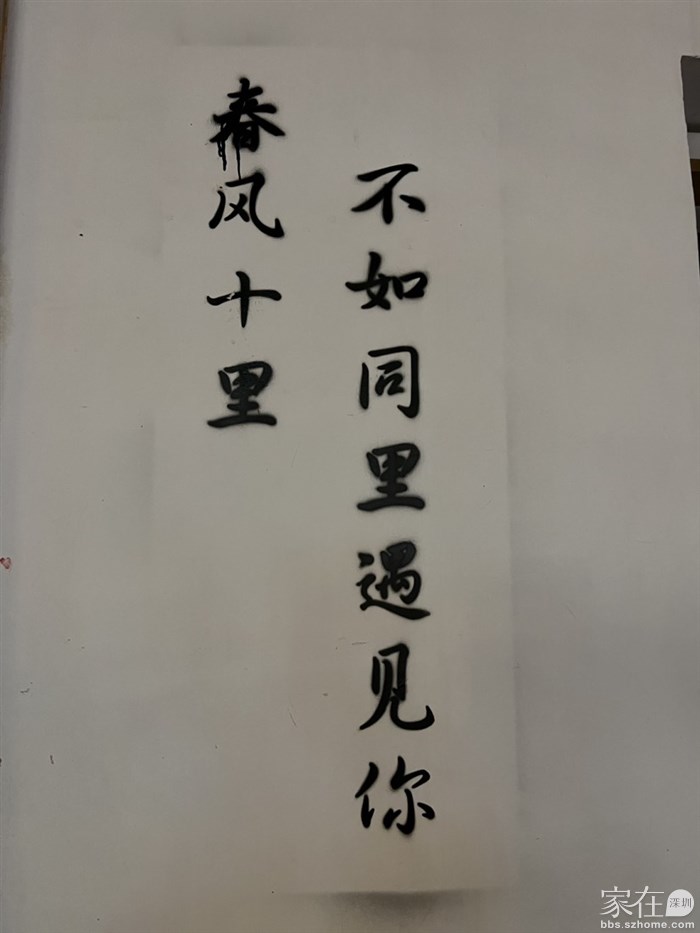 春风十里
不如同里遇见你
家在深圳
bbs.szhome.com